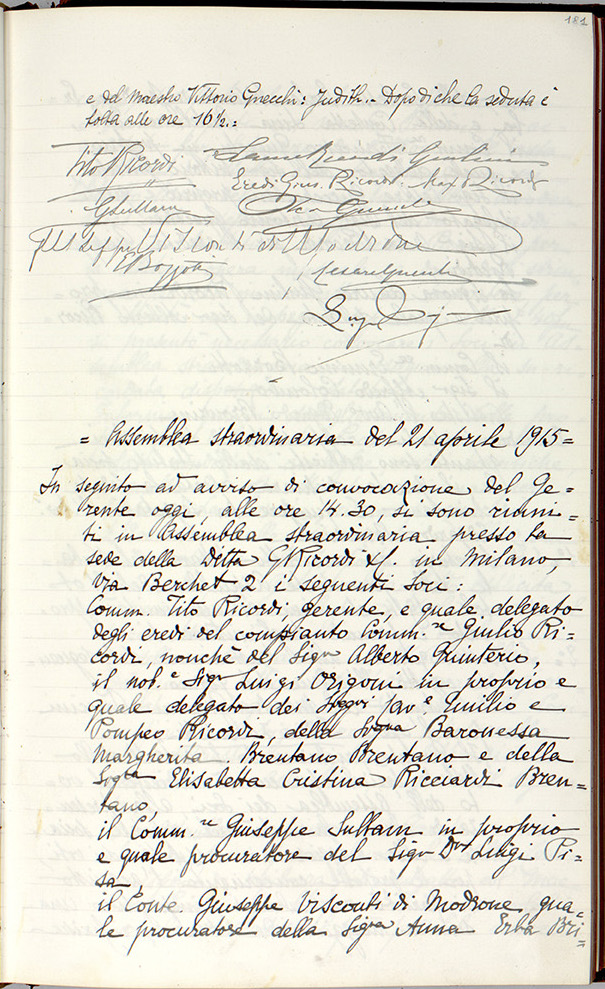 181
e del maestro Vittorio Gnecchi: Judith.- Dopodichè la seduta è
tolta alle ore 16½.=
Tito Ricordi
Eredi Gius. Ricordi. Max Ricordi
GSullam
Giuseppe Visconti di Modrone
EBozzotti
= Assemblea straordinaria del 21 aprile 1915=
In seguito ad avviso di convocazione del Ge=
rente oggi, alle ore 14.30, si sono riuni=
ti in Assemblea straordinaria presso la
sede della Ditta G Ricordi & C. in Milano,
Via Berchet 2 i seguenti soci:
Comm. Tito Ricordi, gerente, e quale delegato
degli eredi del compianto Comm.re Giulio Ri=
cordi, nonchè del Sigr Alberto Quinterio,
il nob.e Sigr Luigi Origoni in proprio e
quale delegato dei Sigri Cav.i Emilio e
Pompeo Ricordi, della Sigra Baronessa
Margherita Brentano Brentano e della
Sigra Elisabetta Cristina Ricciardi Bren=
tano,
il Comm.re Giuseppe Sullam in proprio
e quale procuratore del Sigr Dr Luigi Pi=
sa,
il Conte Giuseppe Visconti di Modrone qua=
le procuratore della Sigra Anna Erba Bri=